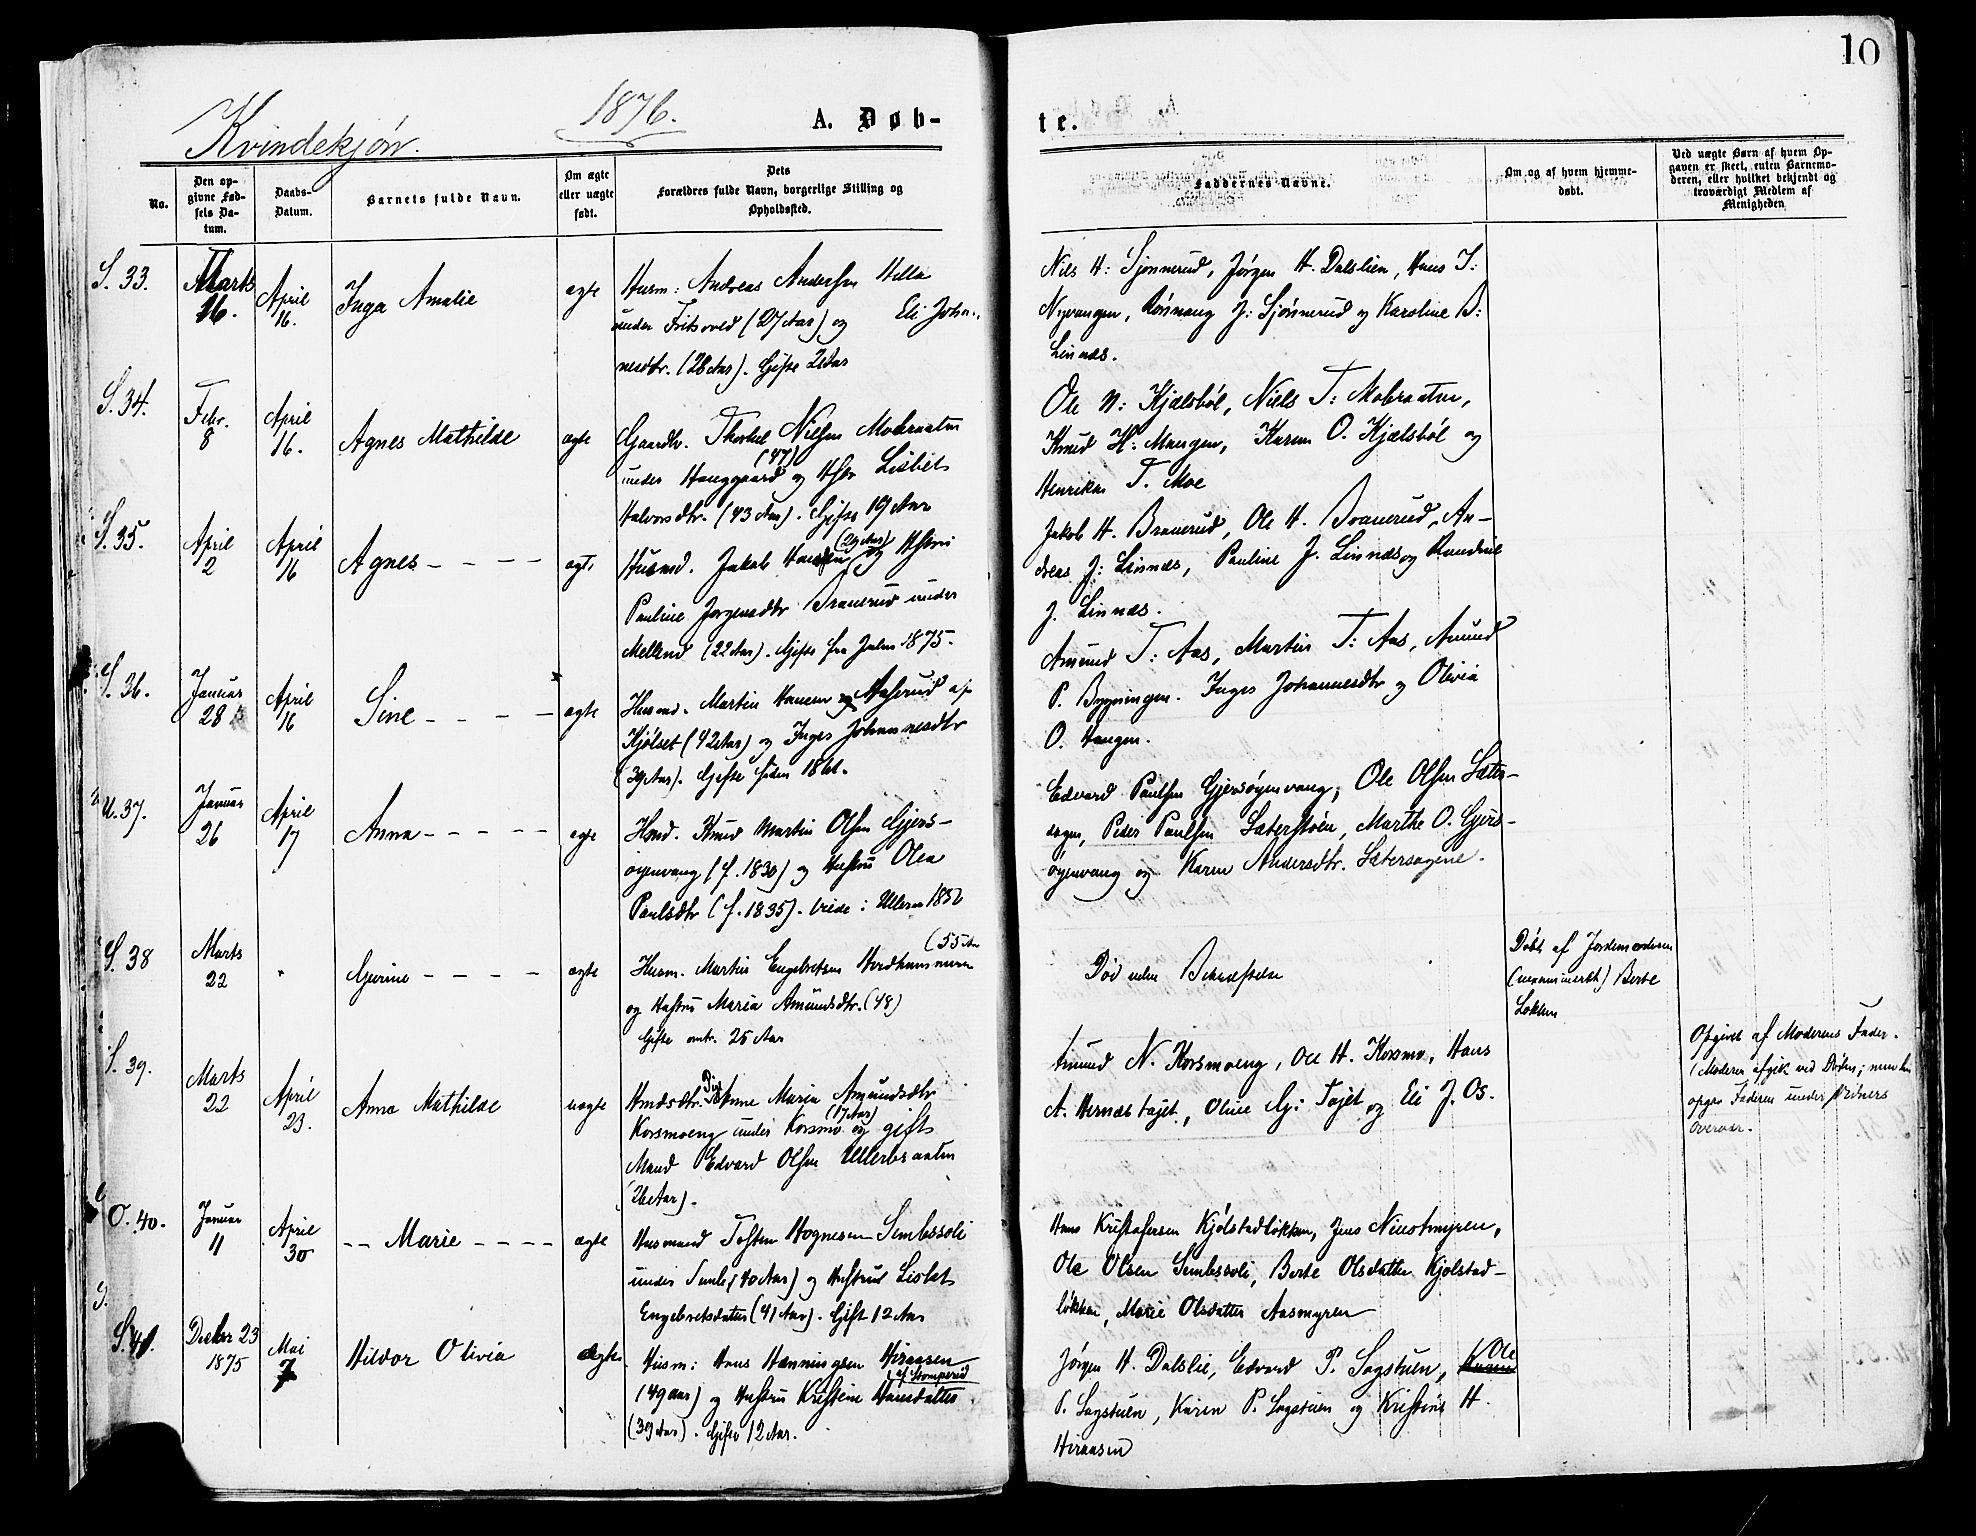 10
Kvindekjøn.
1876.
A. Døb-
te.
No.
Den op-
givne Fød-
sels Da-
tum.
Daabs-
Datum.
Barnets fulde Navn.
Om ægte
eller uægte
født.
Dets
Forældres fulde Navn, borgerlige Stilling og
Opholdssted.
Faddernes Navne.
Om og af hvem hjemme-
døbt.
Ved uægte Børn af hvem Op-
gaven er skeet, enten Barnemo-
deren, eller hvilket bekjendt og
troværdigt Medlem af
Menigheden
S. 33.
Marts
16.
April
16.
Inga Amalie
ægte
Husm: Andreas Andersen
under (27 Aar) og Eli Johan-
nesdtr. (28 Aar). Gifte 2 Aar
Nils H: Sjønnerud, Jørgen H. Dalslien, Hans J:
Nyvangen, Rønnaug J: Sjønnerud og Karoline B:
Linnæs.
S. 34.
Febr.
8
April
16.
Agnes Mathilde
ægte
Gaardbr. Thorkel Nielsen Mobraaten
(47)
under Hauggaard og Hstr Lisbet
Halvorsdtr. (43 Aar). Gifte 19 Aar
Ole N: Kjælsbøl, Niels T: Mobraaten,
Knud H: Mangen, Karen O. Kjælsbøl og
Henrikke T. Moe
S. 35.
April
2
April
16
Agnes - - - -
ægte
(29 Aar)
Husmd. Jakob Hansen og Hstru
Pauline Jørgensdtr Branerud under
Mellend (22 Aar). Gifte fra Julen 1875.
Jakob H. Branerud, Ole H. Branerud, An-
dreas J: Linnæs, Pauline J. Linnæs og Randine
J. Linnæs.
S. 36.
Januar
28
April
16
Sine - - - -
ægte
Husmd. Martin Hansen Aaserud af
Kjølset (42 Aar) og Inger Johannesdtr
(39 Aar). Gifte siden 1861.
Amund T: Aas, Martin T: Aas, Amund
P. Bygningen. Inger Johannesdtr og Olivia
O. Haugen.
U. 37.
Januar
26
April
17
Anna - - - - -
ægte
Hmd. Knud Martin Olsen Gjers-
øgenvang (f. 1830) og Hustru Olea
Paulsdtr (f. 1835). viede i Ullern 1856
Edvard Paulsen Gjersøgenvang, Ole Olsen Sæter-
sagen, Peder Paulsen Sæterstøen, Marthe O. Gjers-
øgenvang og Karen Andersdtr. Sætersagene.
S. 38
Marts
22
Gurine - - - -
ægte
(55 Aar
Husm. Martin Engebretsen Nordhammeren
og Hustru Maria Amundsdtr. (48)
Gifte omtr. 25 Aar
Død uden Bekræftelse
Døbt af Jordemoderen
(uexamineret) Berte
Løkken
S. 39.
Marts
22
April
23.
Anna Mathilde
uægte
Hmdsdtr. Pige Anne Maria Amundsdtr
(17 Aar)
Korsmoeng under Korsmo og gift
Mand Edvard Olsen Ullernsaaten
(26 Aar).
Amund N. Korsmoeng, Ole H. Korsmo, Hans
A. Hernæstajet, Oline G: Tajet og Eli J. Os.
Opgivet af Moderens Fader.
(Moderen afgik ved Døden; men hun
opgav Faderen under Vidners
Overvær.
O. 40.
Januar
11
April
30
-- Marie - - - -
ægte
Husmand Tosten Hognesen Sembssoli
under Semb (40 Aar) og Hustrue Lisbet
Engebretsdatter (41 Aar). Gift 12 Aar
Hans Kristofersen Kjølstadløkken, Jens Niustmyren,
Ole Olsen Sembssoli, Berte Olsdatter Kjølstad-
løkken, Marie Olsdatter Aasmyren
S. 41.
Decbr 23
1875
Mai
7
Hildor Olivia
ægte
Husm: Hans Henningsen Heraasen
(af Stomperud
(49 aar) og Hustru Kristine Hansdatter
(39 Aar). Gifte 12 Aar.
Jørgen H. Dalslie, Edvard P. Sagstuen, Ole
P. Sagstuen, Karen P. Sagstuen og Kristine H.
Heraasen